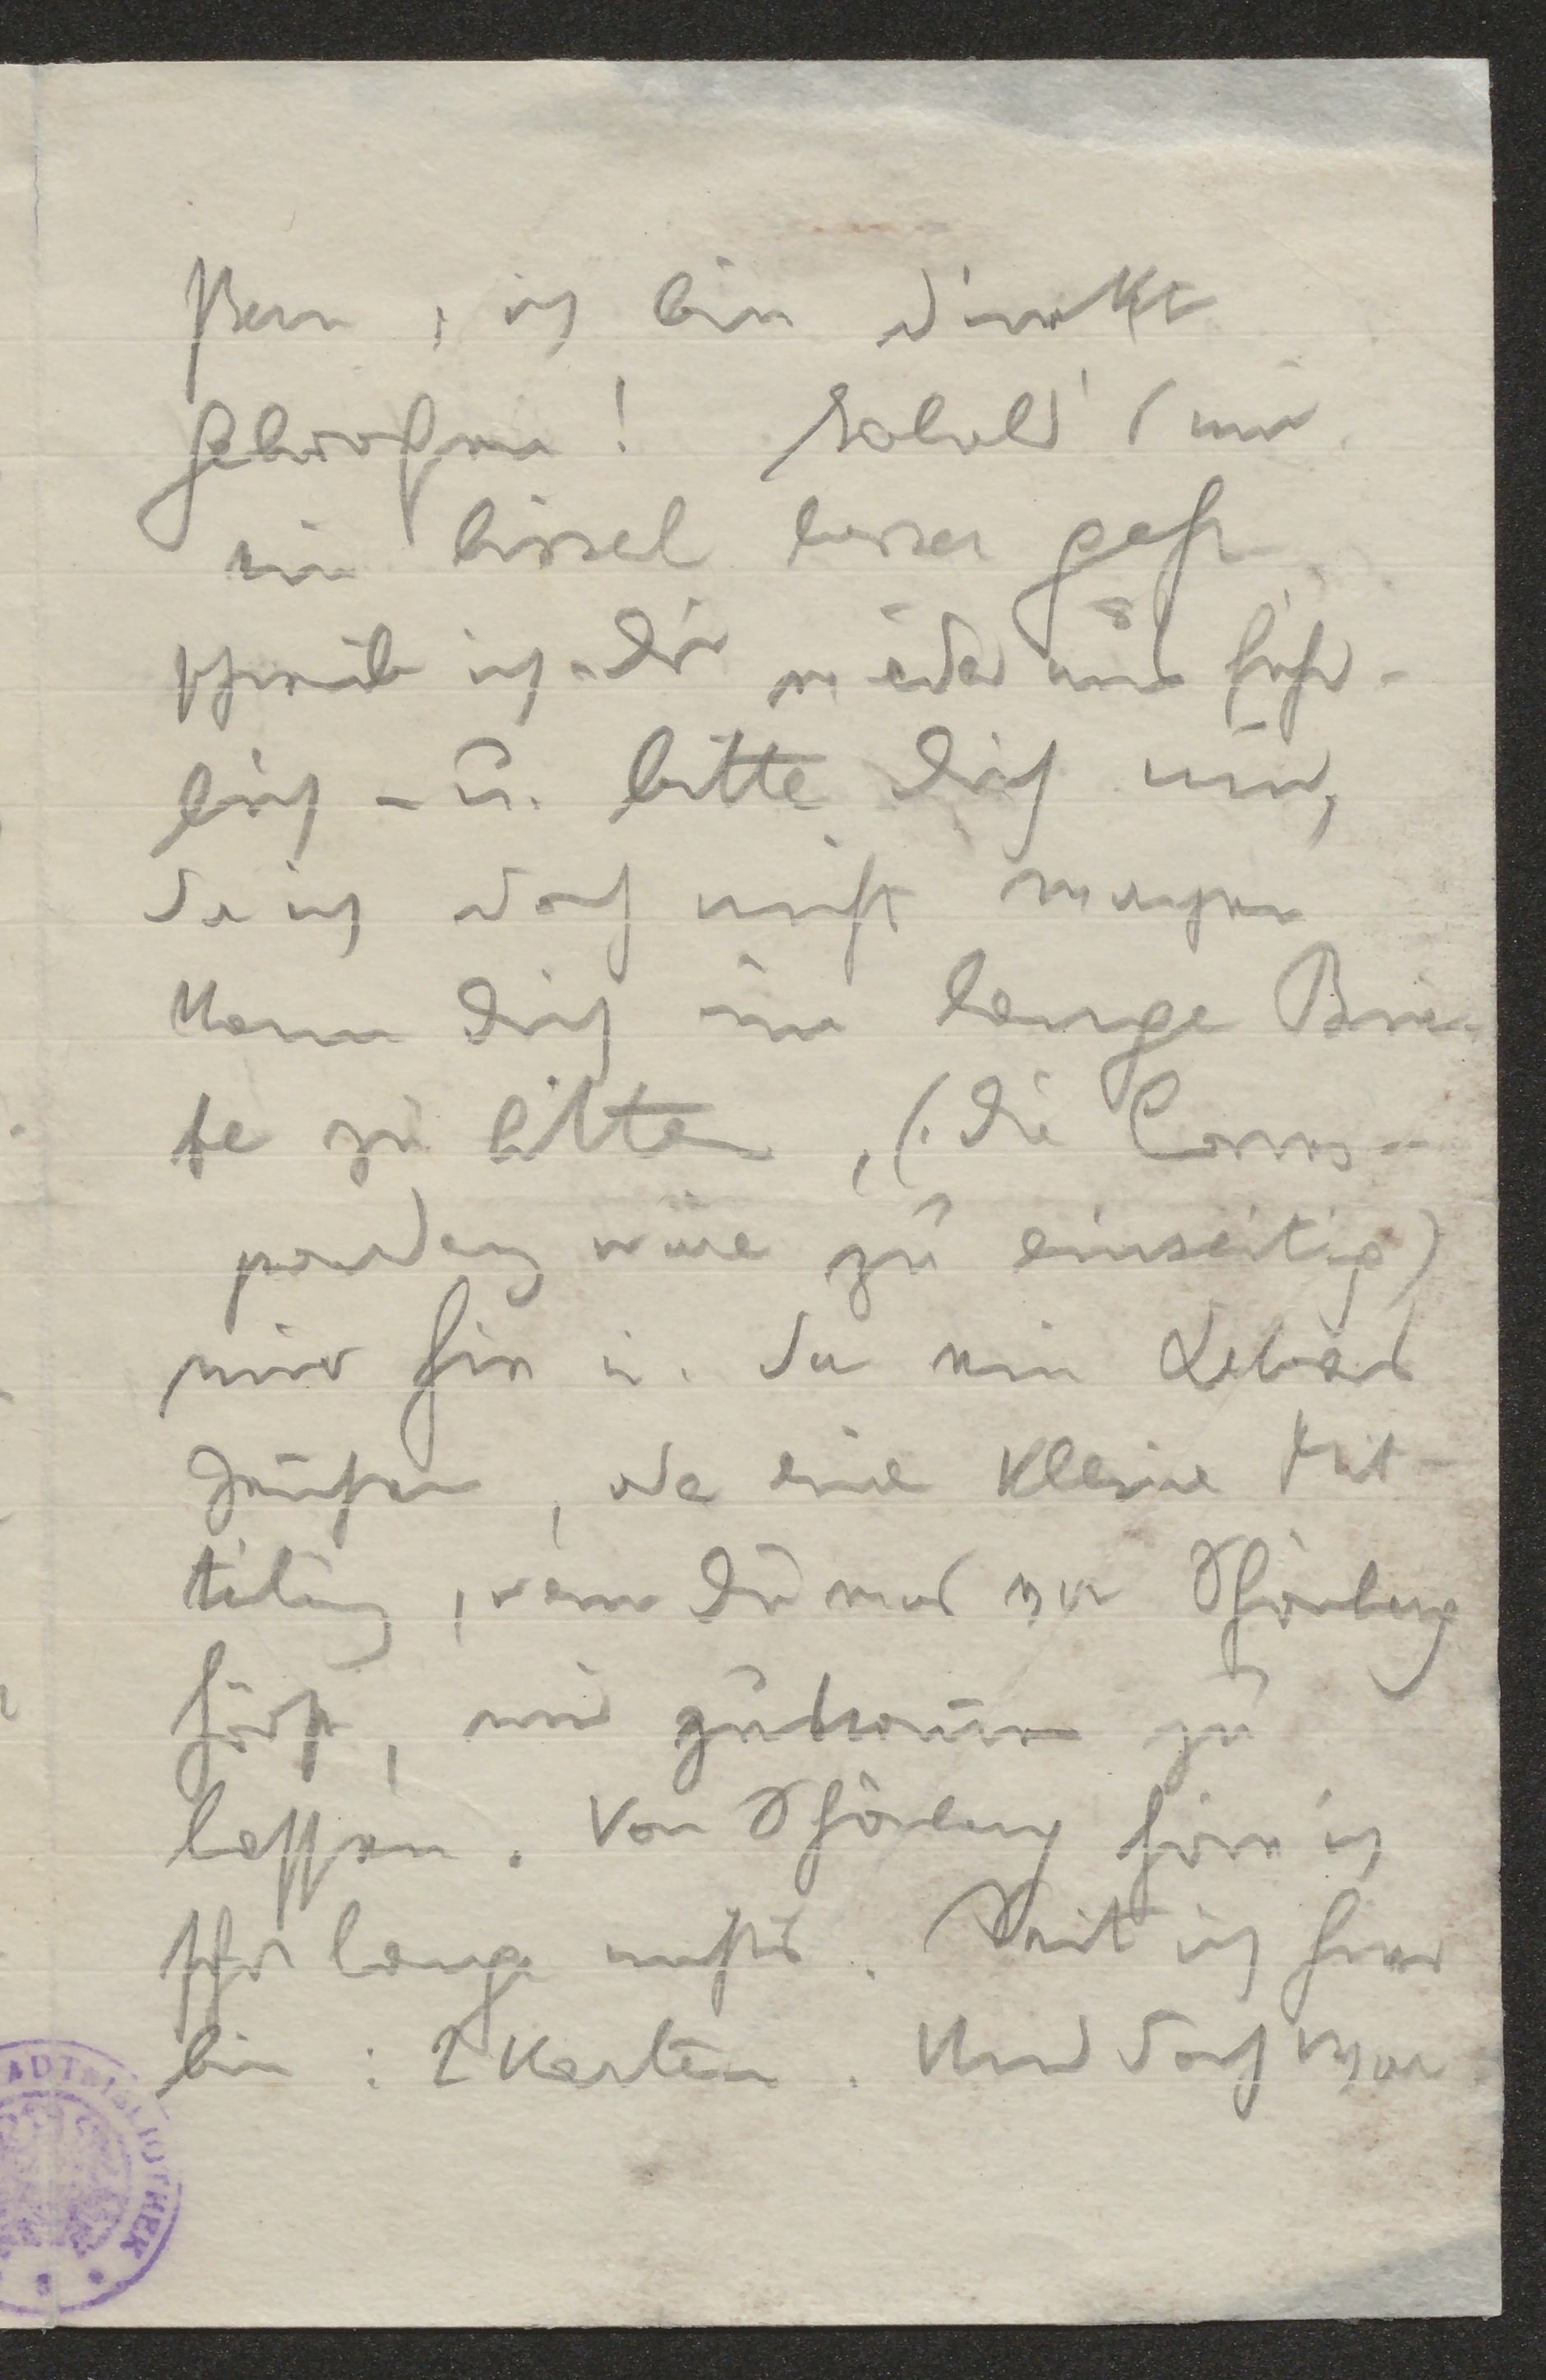 ßern, ich bin direkt
gebrochen! Sobald's mir
ein bissel besser geht
schreib ich Dir wieder ausführ-
lich - u. bitte Dich nur,
da ich doch nicht wagen
kann Dich um lange Brie-
fe zu bitten, (die Corres-
pondenz wäre zu einseitig)
mir hin u. da ein Lebens
Zeichen, oder eine kleine Mit-
teilung, wenn Du was von Schönberg
hörst, mir zukommen zu
lassen. Von Schönberg höre ich
sehr lange nichts. Seit ich hier
bin: 2 Karten. Und doch war
STADTBIBLIOTHEK